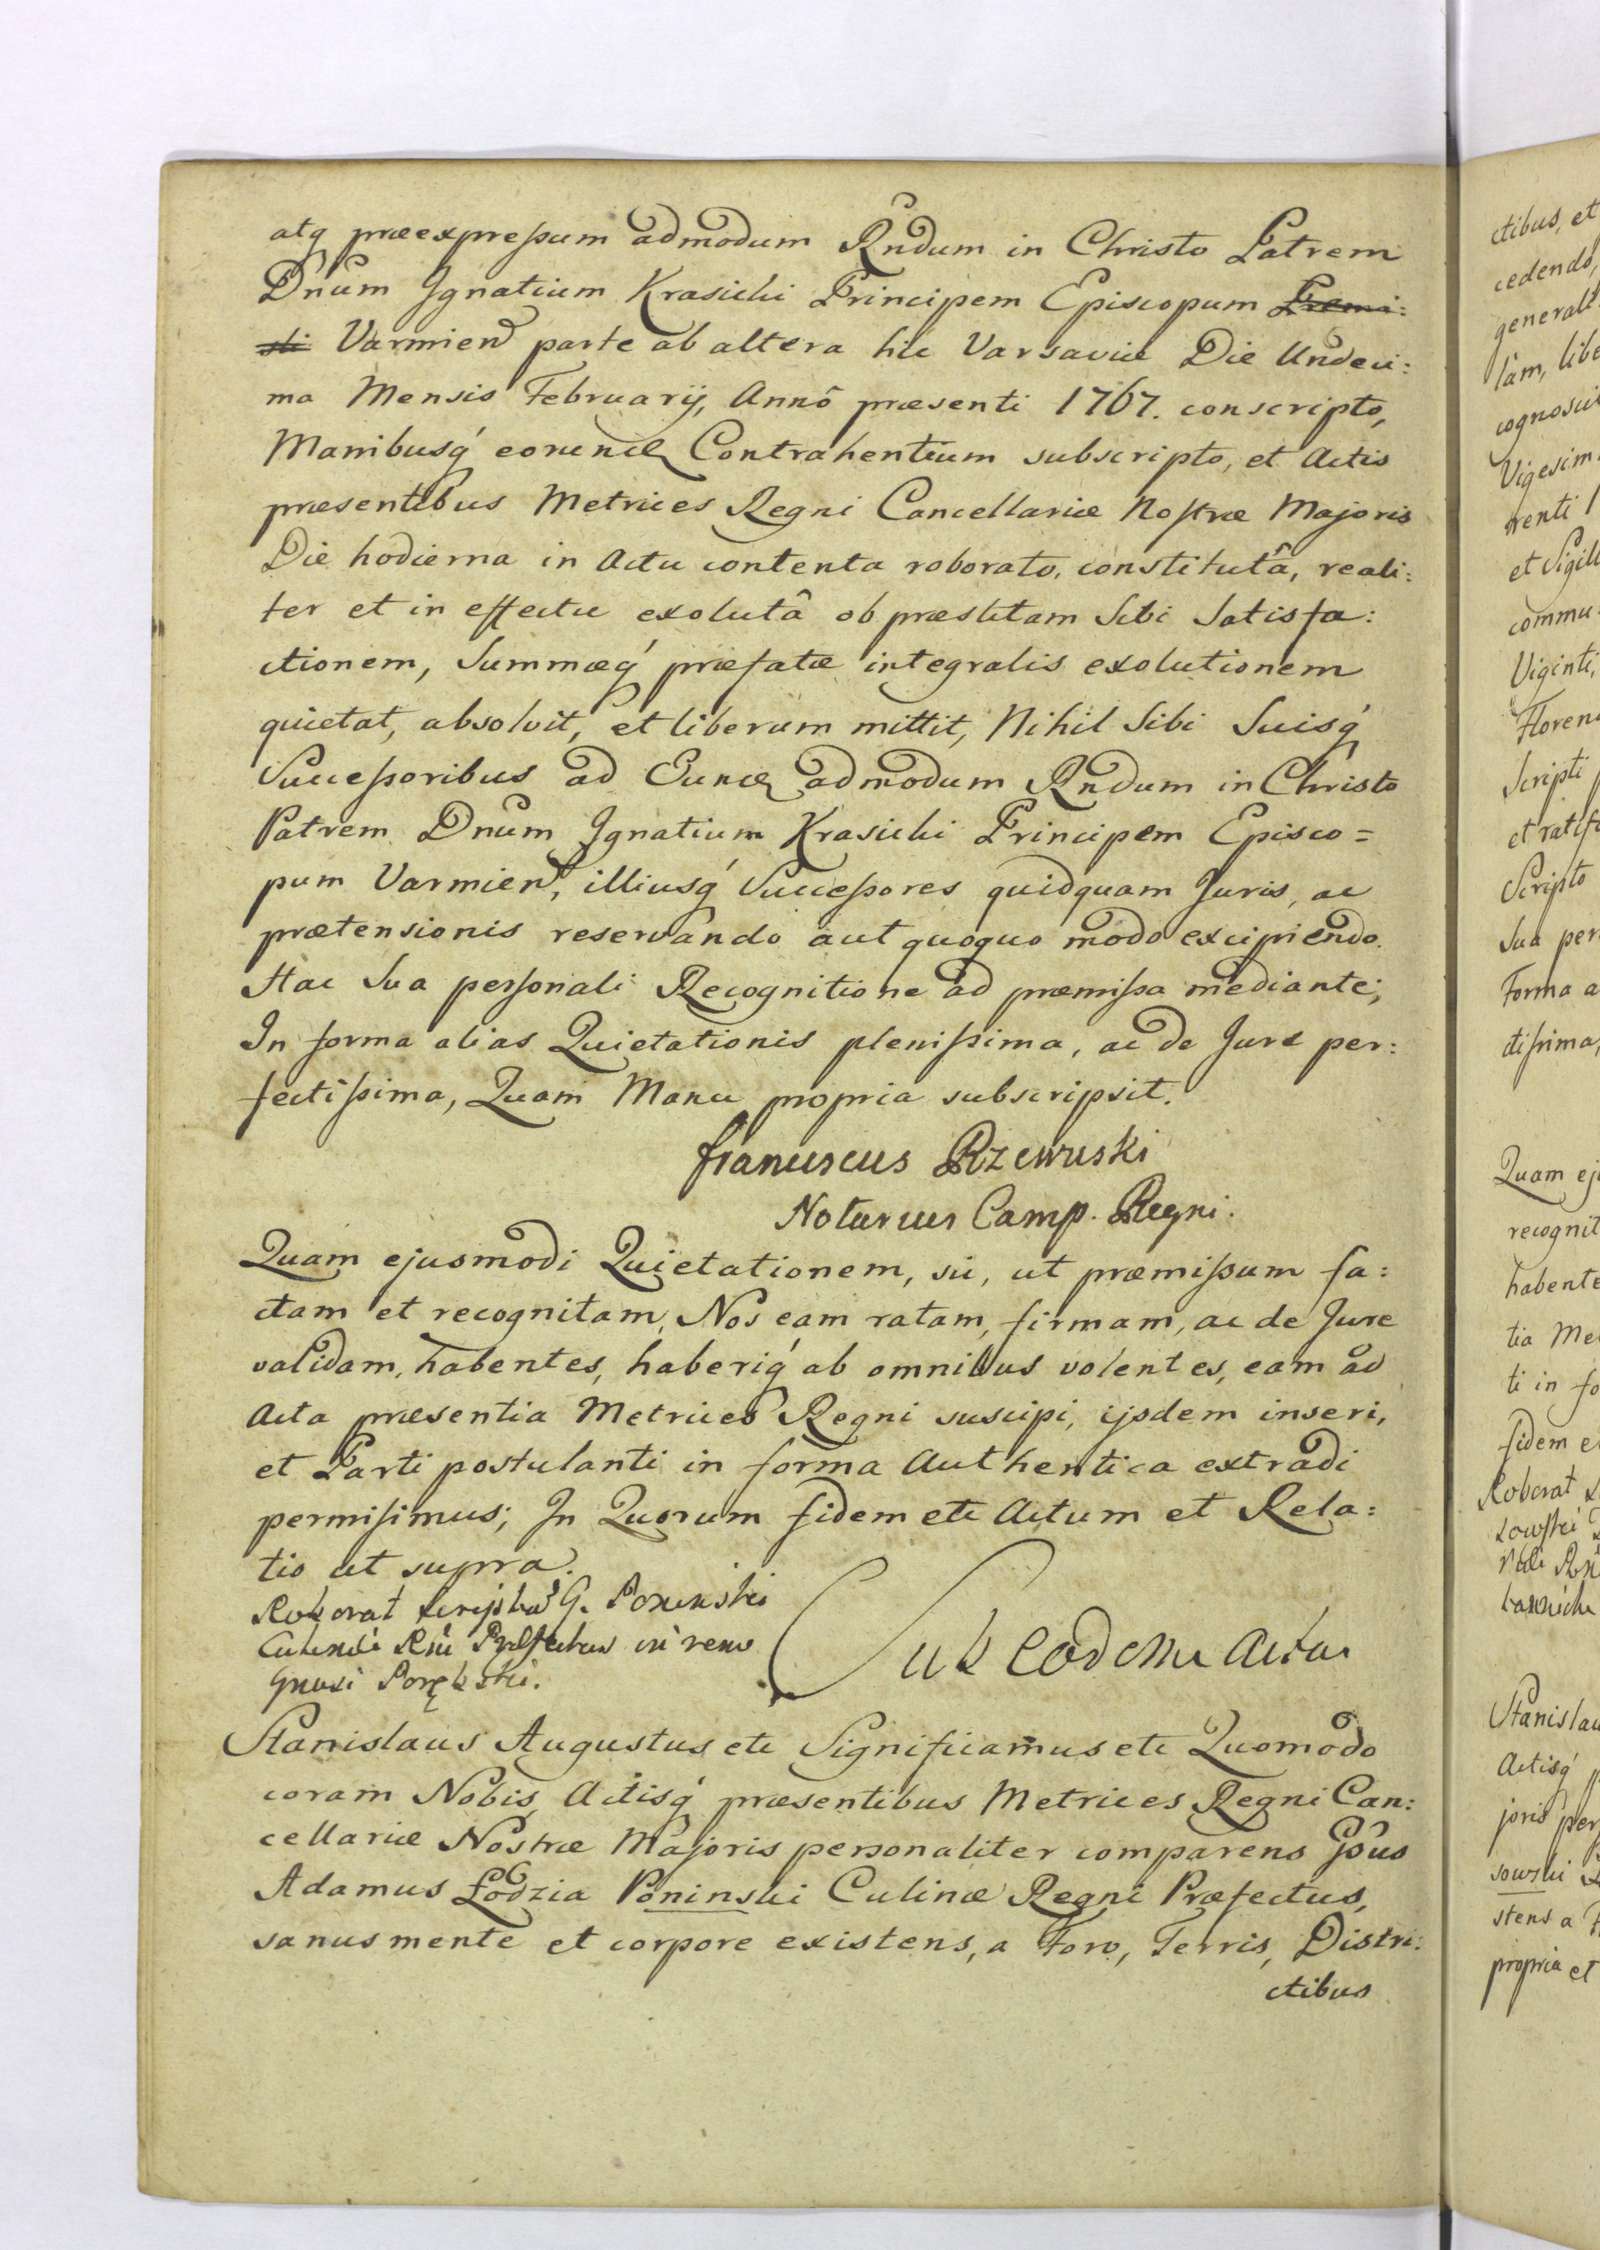 atq præexpressum admodum Rndum in Christo Patrem
Dnum Ignatium Krasicki Principem Episcopum Premi:
sli Varmien parte ab altera hic Varsaviæ Die Undeci:
ma Mensis February, Annô præsenti 1767. conscripto,
Manibusq́ eorund Contrahentium subscripto, et Actis
præsentibus Metrices Regni Cancellariæ Nostræ Majoris
Die hodierna in Actu contenta roborato, constitutâ, reali:
ter et in effectu exolutâ ob præstitam Sibi Satisfa:
ctionem, Summæq́ præfatæ integralis exolutionem
quietat, absolvit, et liberum mittit, Nihil Sibi Suisq́
Successoribus ad Eund admodum Rndum in Christo
Patrem Dnum Ignatium Krasicki Principem Episco=
pum Varmien, illiusq́ Successores quidquam Juris, ac
prætensionis reservando aut quoquo modo excipiendo.
Hac Sua personali Recognitione ad præmissa mediante,
In forma alias Quietationis plenissima, ac de Jure per:
fectissima, Quam Manu propria subscripsit.
Franciscus Rzewuski
Notarius Camp. Regni.
Quam ejusmodi Quietationem, sic, ut præmissum fa:
ctam et recognitam, Nos eam ratam, firmam, ac de Jure
validam, habentes, haberiq́ ab omnibus volentes, eam ad
Acta præsentia Metrices Regni suscipi, ijsdem inseri,
et Parti postulanti in forma Authentica extradi
permisimus; In Quorum fidem etc Actum et Rela:
tio ut supra.
Roborat scriptum G. Poninski
Culinæ Præfectus in rem
Gnosi Porębski.
Sub eodem Actu
Stanislaus Augustus etc Significamus etc Quomodo
coram Nobis, Actisq́ præsentibus Metrices Regni Can:
cellariæ Nostræ Majoris personaliter comparens Gsus
Adamus Łodzia Poninski Culinæ Regni Præfectus,
sanus mente et corpore existens, a Foro, Terris, Distri:
ctibus
ctibus, et
cedendo,
generali
lam, libe
cognosci
Vigesim
senti 1
et Sigill
commu
Viginti,
Floren
Scripti
et ratif
Scripto
Sua per
Forma a
ctissima,
Quam ej
recognit
habente
tia Me
ti in fo
fidem e
Roborat
Stanislau
Actisq́ p
joris per
sowski
stens a F
propria et